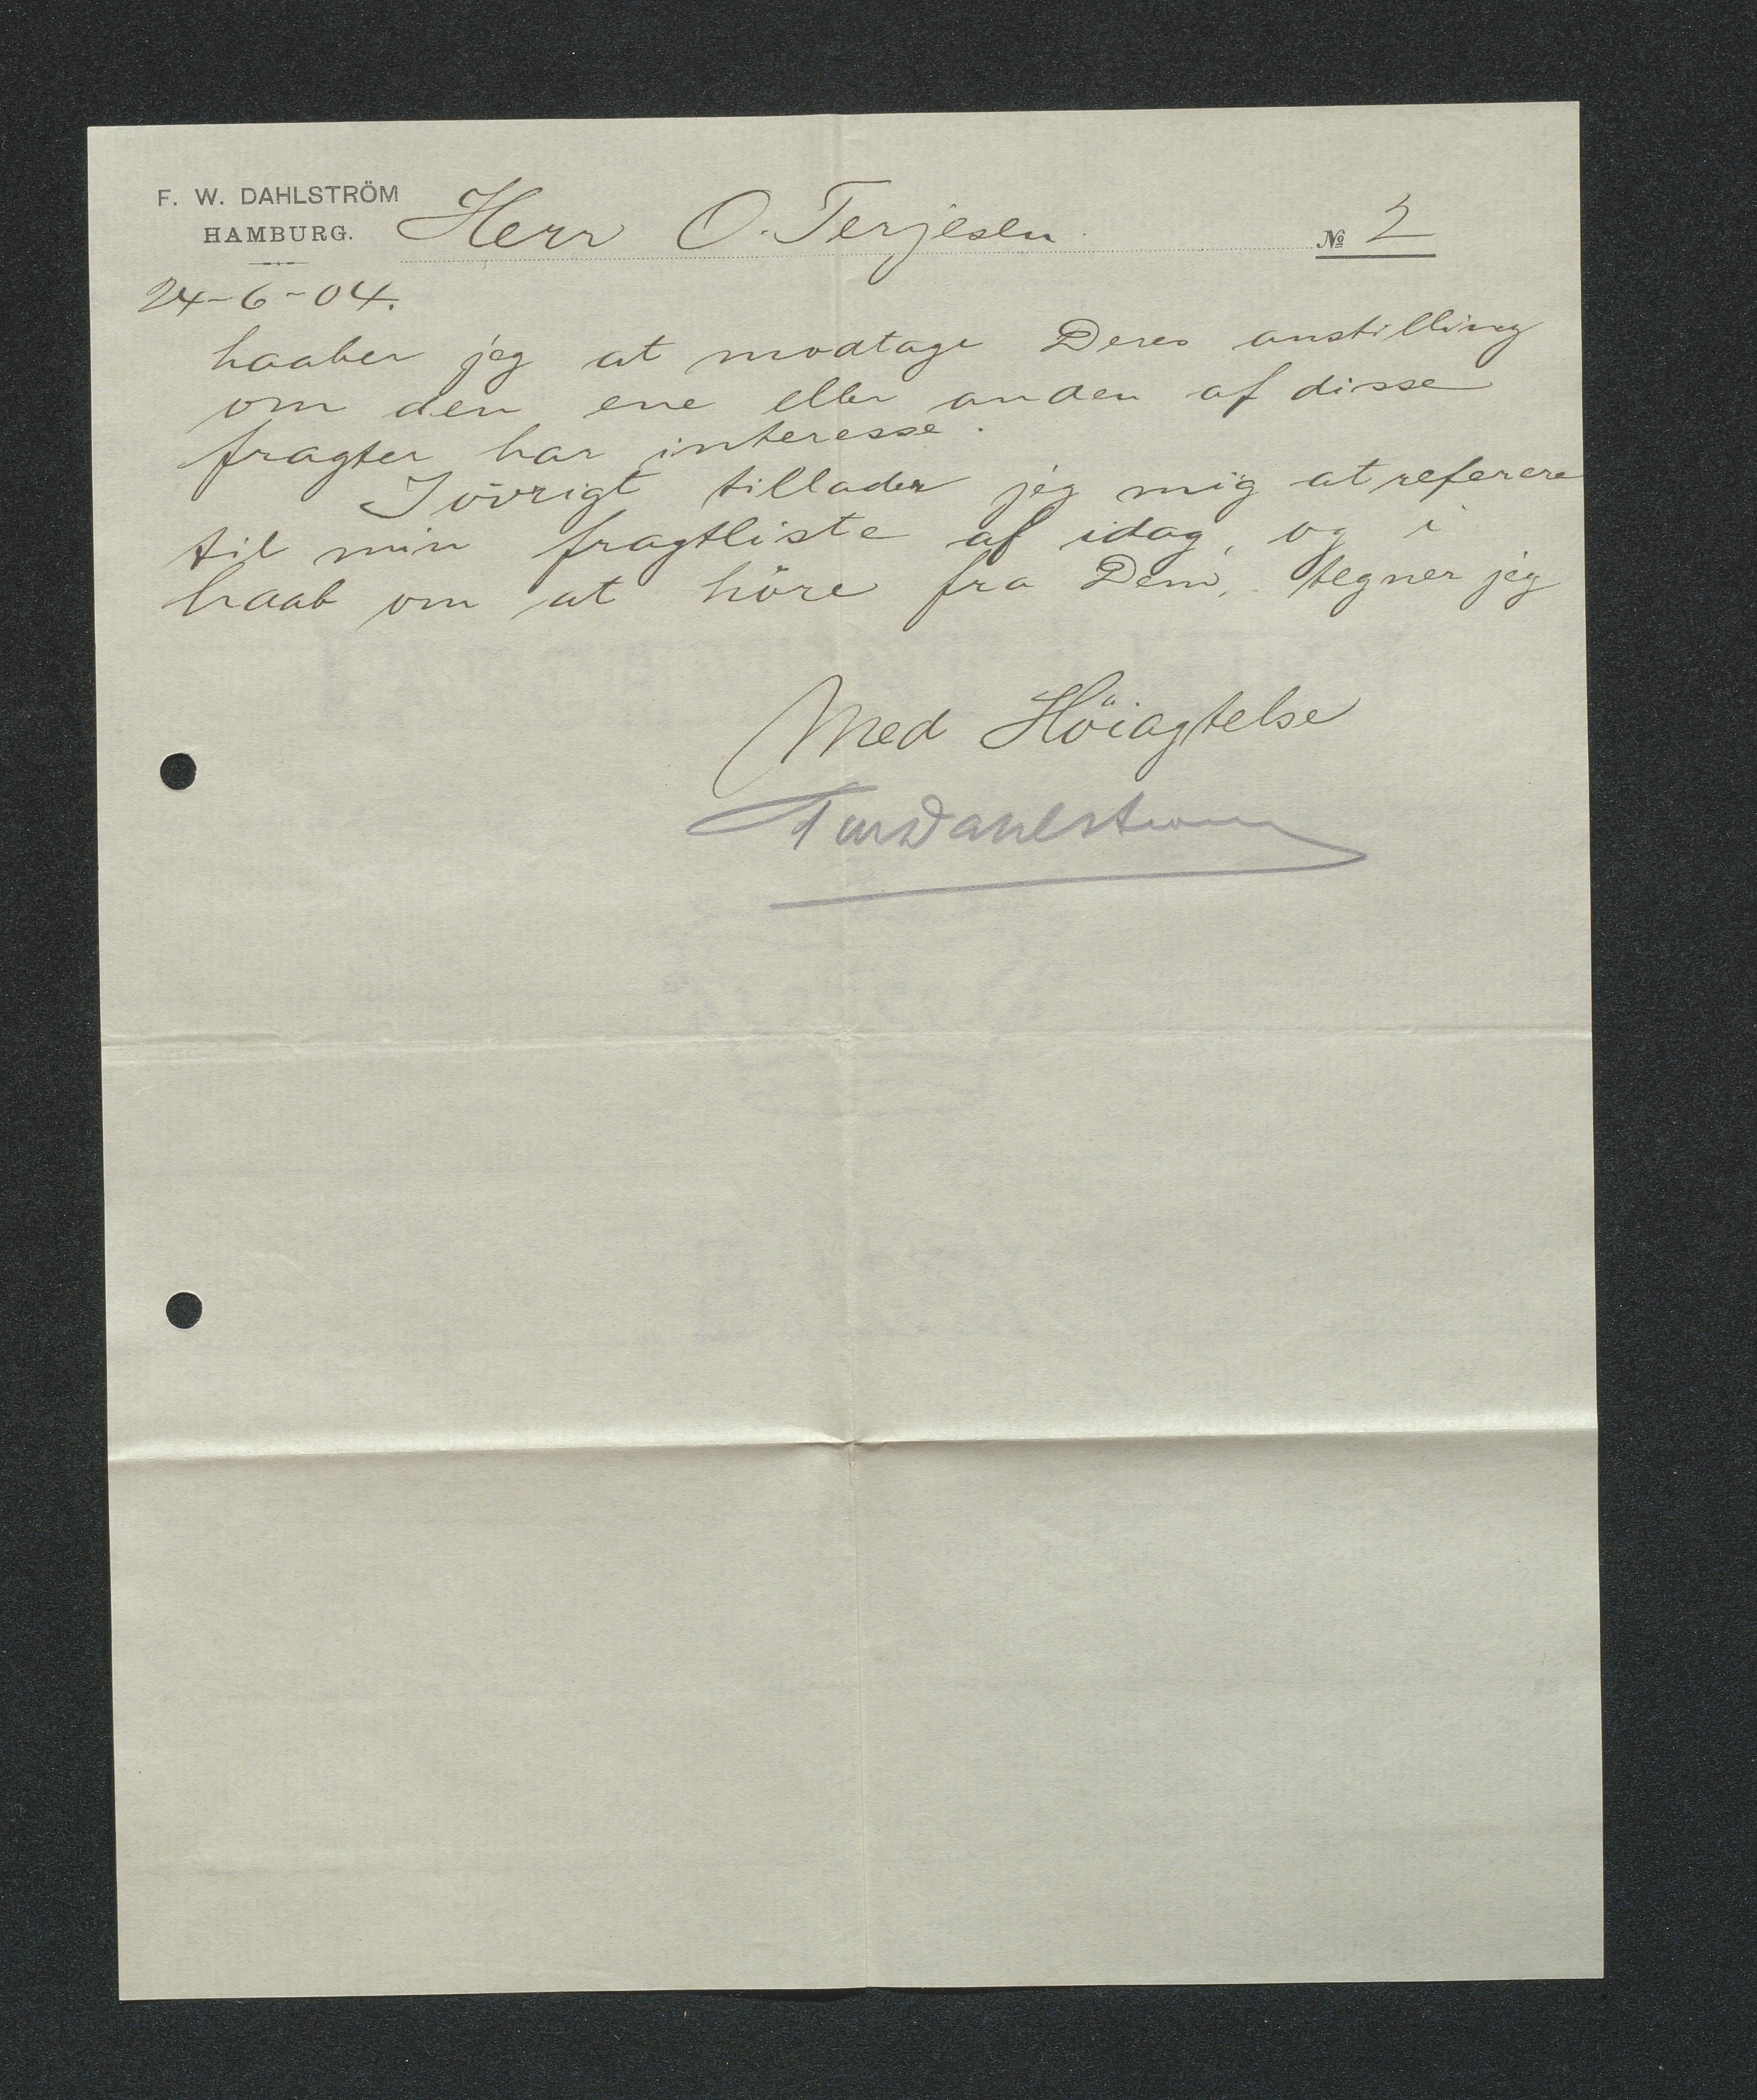 F. W. DAHLSTRÖM
HAMBURG.
Herr O. Terjesen
№ 2
24-6-04.
haaber jeg at modtage Deres anstilling
om den ene eller anden af disse
fragter har interesse.
Iövrigt tillader jeg mig at referere
til min fragtliste af idag, og i
haab om at höre fra Dem, tegner jeg
Med Höiagtelse
FWDahlström